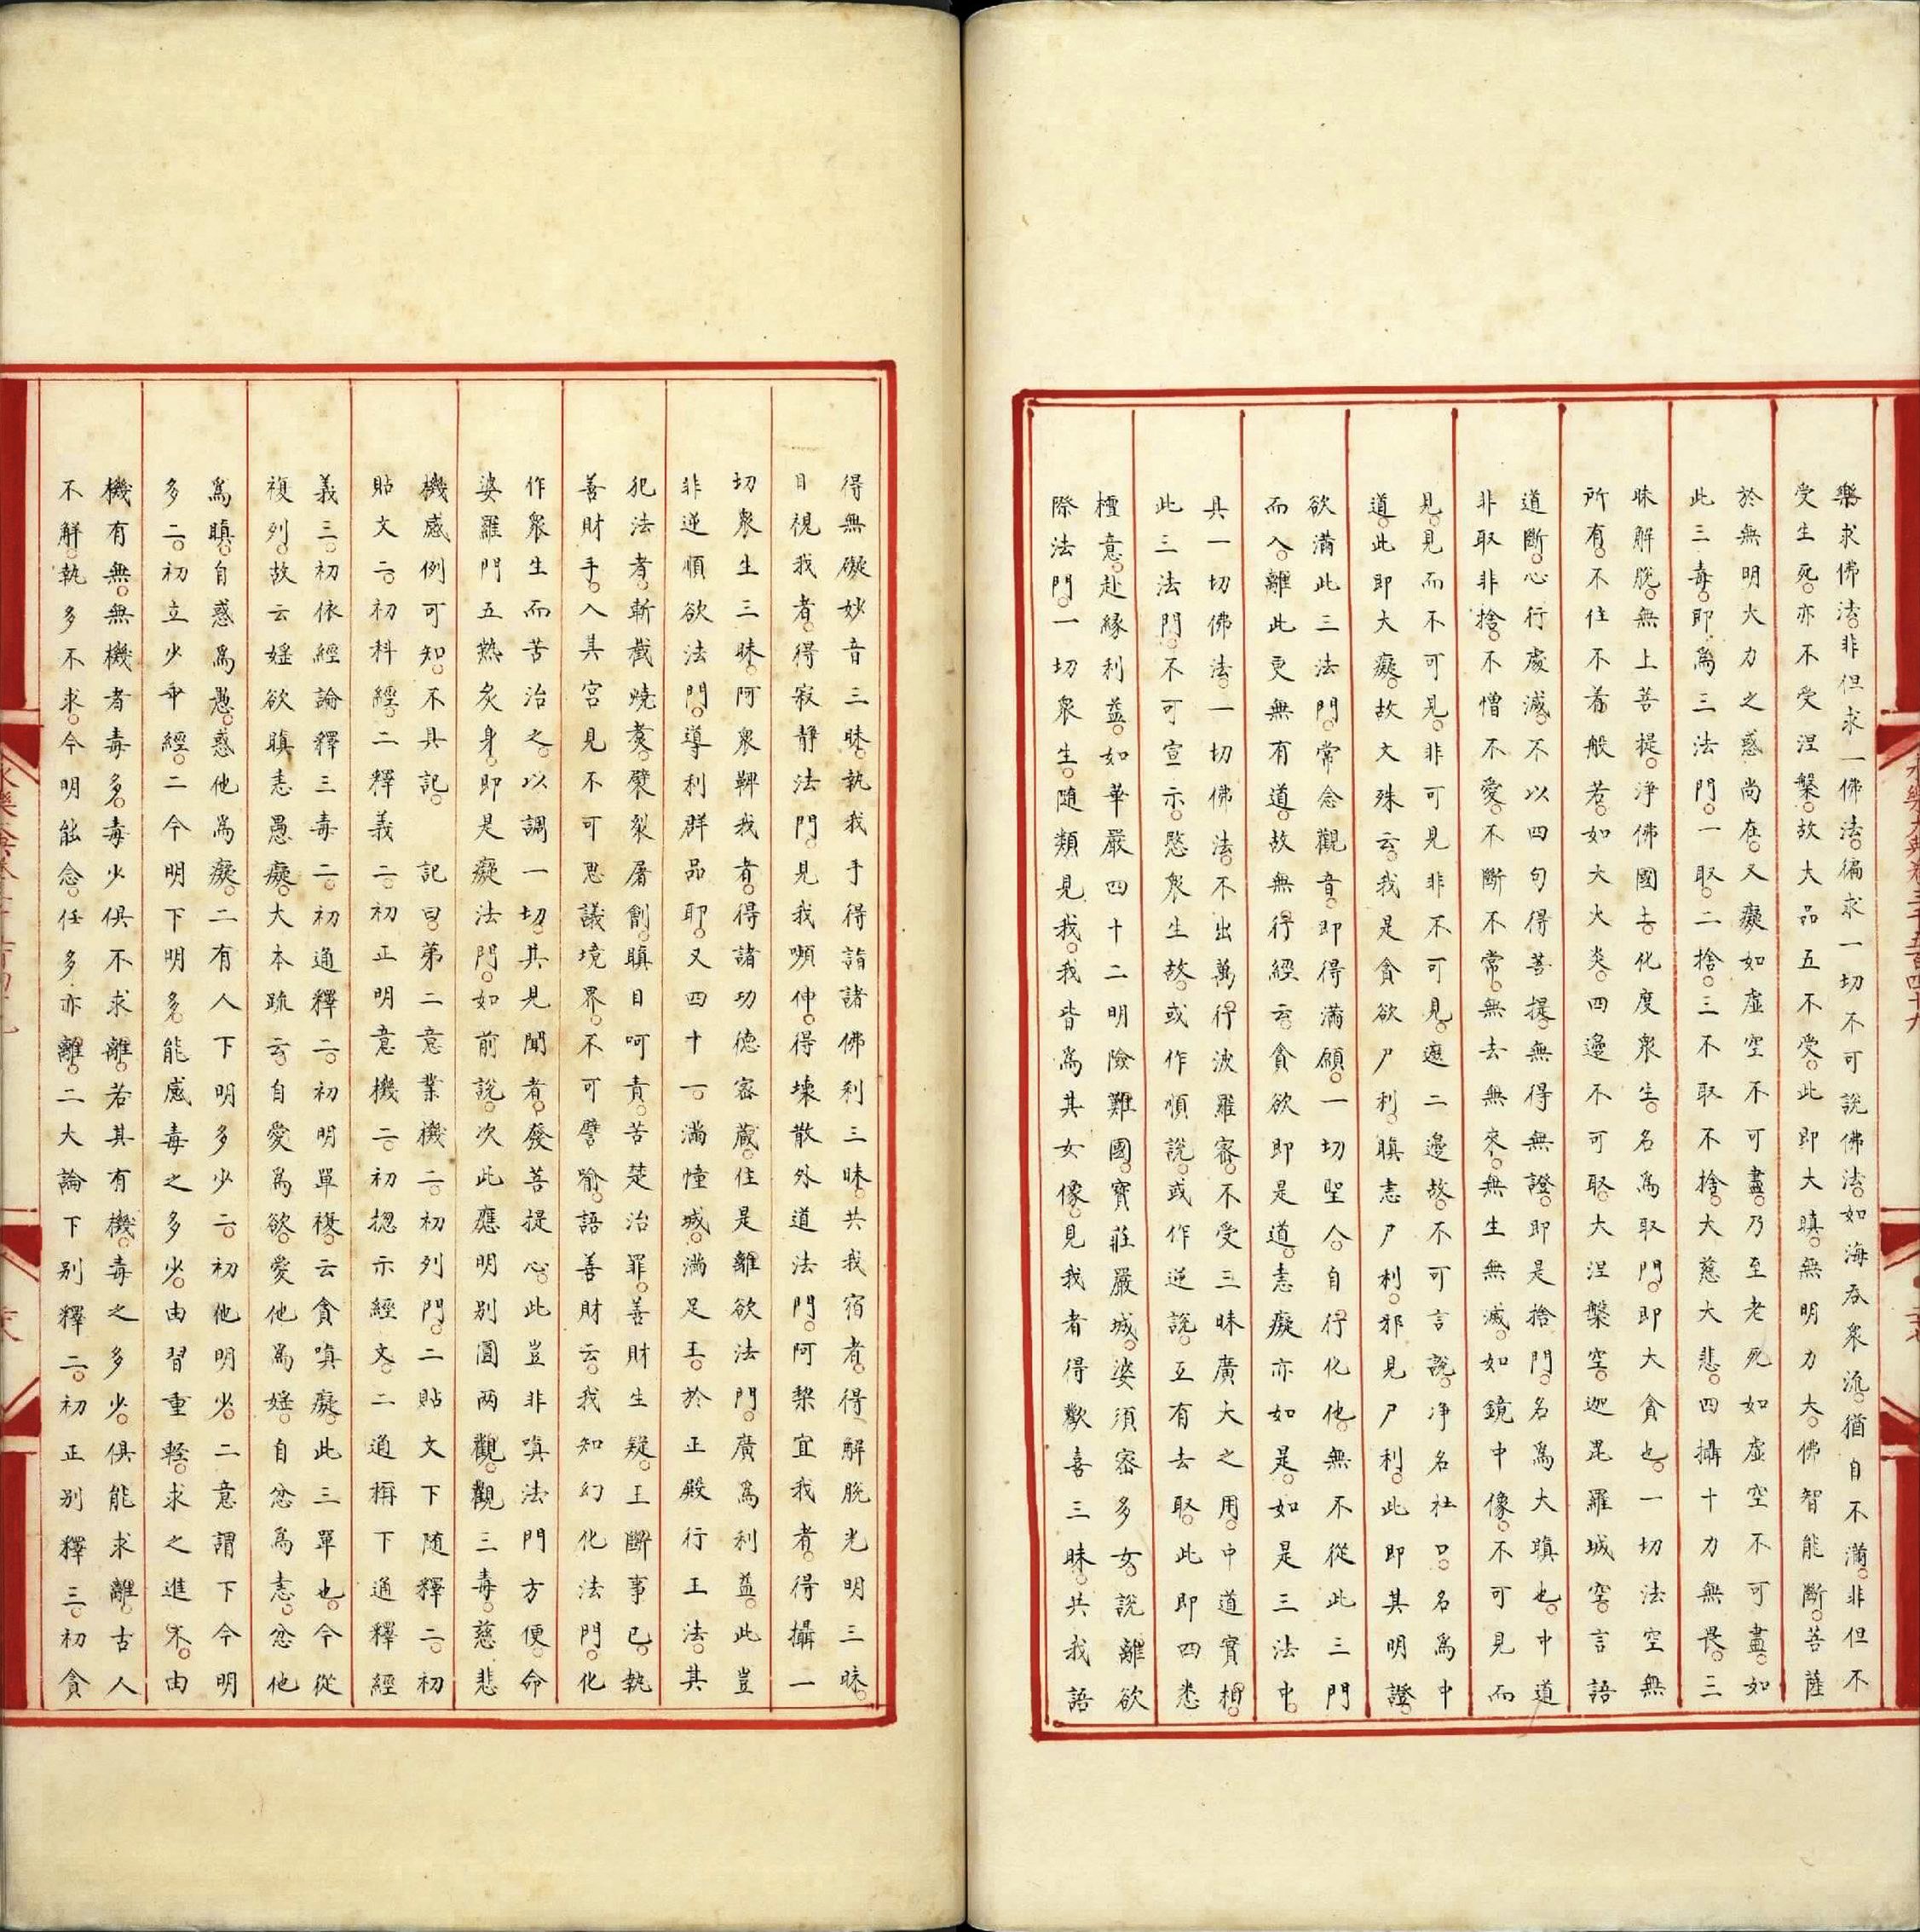 樂求佛法非但求一佛法徧求一切不可說佛法如海吞衆流猶自不滿非但不
受生死亦不受涅槃故大品五不受此即大瞋無明力大佛智能斷菩薩
於無明大力之惑尚在又癡如虛空不可盡乃至老死如虛空不可盡如
此三毒即爲三法門一取二捨三不取不捨大慈大悲四攝十力無畏三
昧解脫無上菩提淨佛國去化度衆生名爲取門即大貪也一切法空無
所有不住不着般若如大火炎四邊不可取大涅槃空迦毘羅城空言語
道斷心行處滅不以四句得菩提無得無證即是捨門名爲大瞋也中道
非取非捨不憎不愛不斷不常無去無來無生無滅如鏡中像不可見而
見見而不可見非可見非不可見遮二邊故不可言說淨名杜口名爲中
道此即大癡故文殊云我是貪欲尸利瞋恚尸利邪見尸利此即其明證
欲滿此三法門常念觀音即得滿願一切聖人自行化他無不從此三門
而入離此更無有道故無行經云貪欲即是道恚癡亦如是如是三法中
具一切佛法一切佛法不出萬行波羅密不受三昧廣大之用中道實相
此三法門不可宣示愍衆生故或作順說或作逆說互有去取此即四悉
檀意赴緣利益如華嚴四十二明險難國寶莊嚴城婆須密多女說離欲
際法門一切衆生隨類見我我皆爲其女像見我者得歡喜三昧共我語
得無礙妙音三昧執我手得詣諸佛刹三昧共我宿者得解脫光明三昧
目視我者得寂靜法門見我嚬伸得壞散外道法門阿梨宜我者得攝一
切衆生三昧阿衆鞞我者得諸功德密藏住是離欲法門廣爲利益此豈
非逆順欲法門導利群品耶又四十一滿幢城滿足王於正殿行王法其
犯法者斬截燒煑劈裂屠割瞋目呵責苦楚治罪善財生疑王斷事已執
善財手入其宮見不可思議境界不可譬喻語善財云我知幻化法門化
作衆生而苦治之以調一切其見聞者發菩提心此豈非嗔法門方便命
婆羅門五熱炙身即是癡法門如前說次此應明別圓两觀觀三毒慈悲
機感例可知不具記 記曰第二意業機二初列門二貼文下随釋二初
貼文二初科經二釋義 二初正明意機二初揔示經文二通稱下通釋經
義三初依經論釋三毒二初通釋二初明單複云貪嗔癡此三單也今從
複列故云婬欲瞋恚愚癡大本疏云自愛爲欲愛他爲婬自忿爲恚忿他
爲瞋自惑爲愚惑他爲癡二有人下明多少二初他明少二意謂下今明
多二初立少爭經二今明下明多能感毒之多少由習重輕求之進不由
機有無無機者毒多毒少俱不求離若其有機毒之多少俱能求離古人
不解執多不求今明能念任多亦離二大論下别釋二初正别釋三初貪